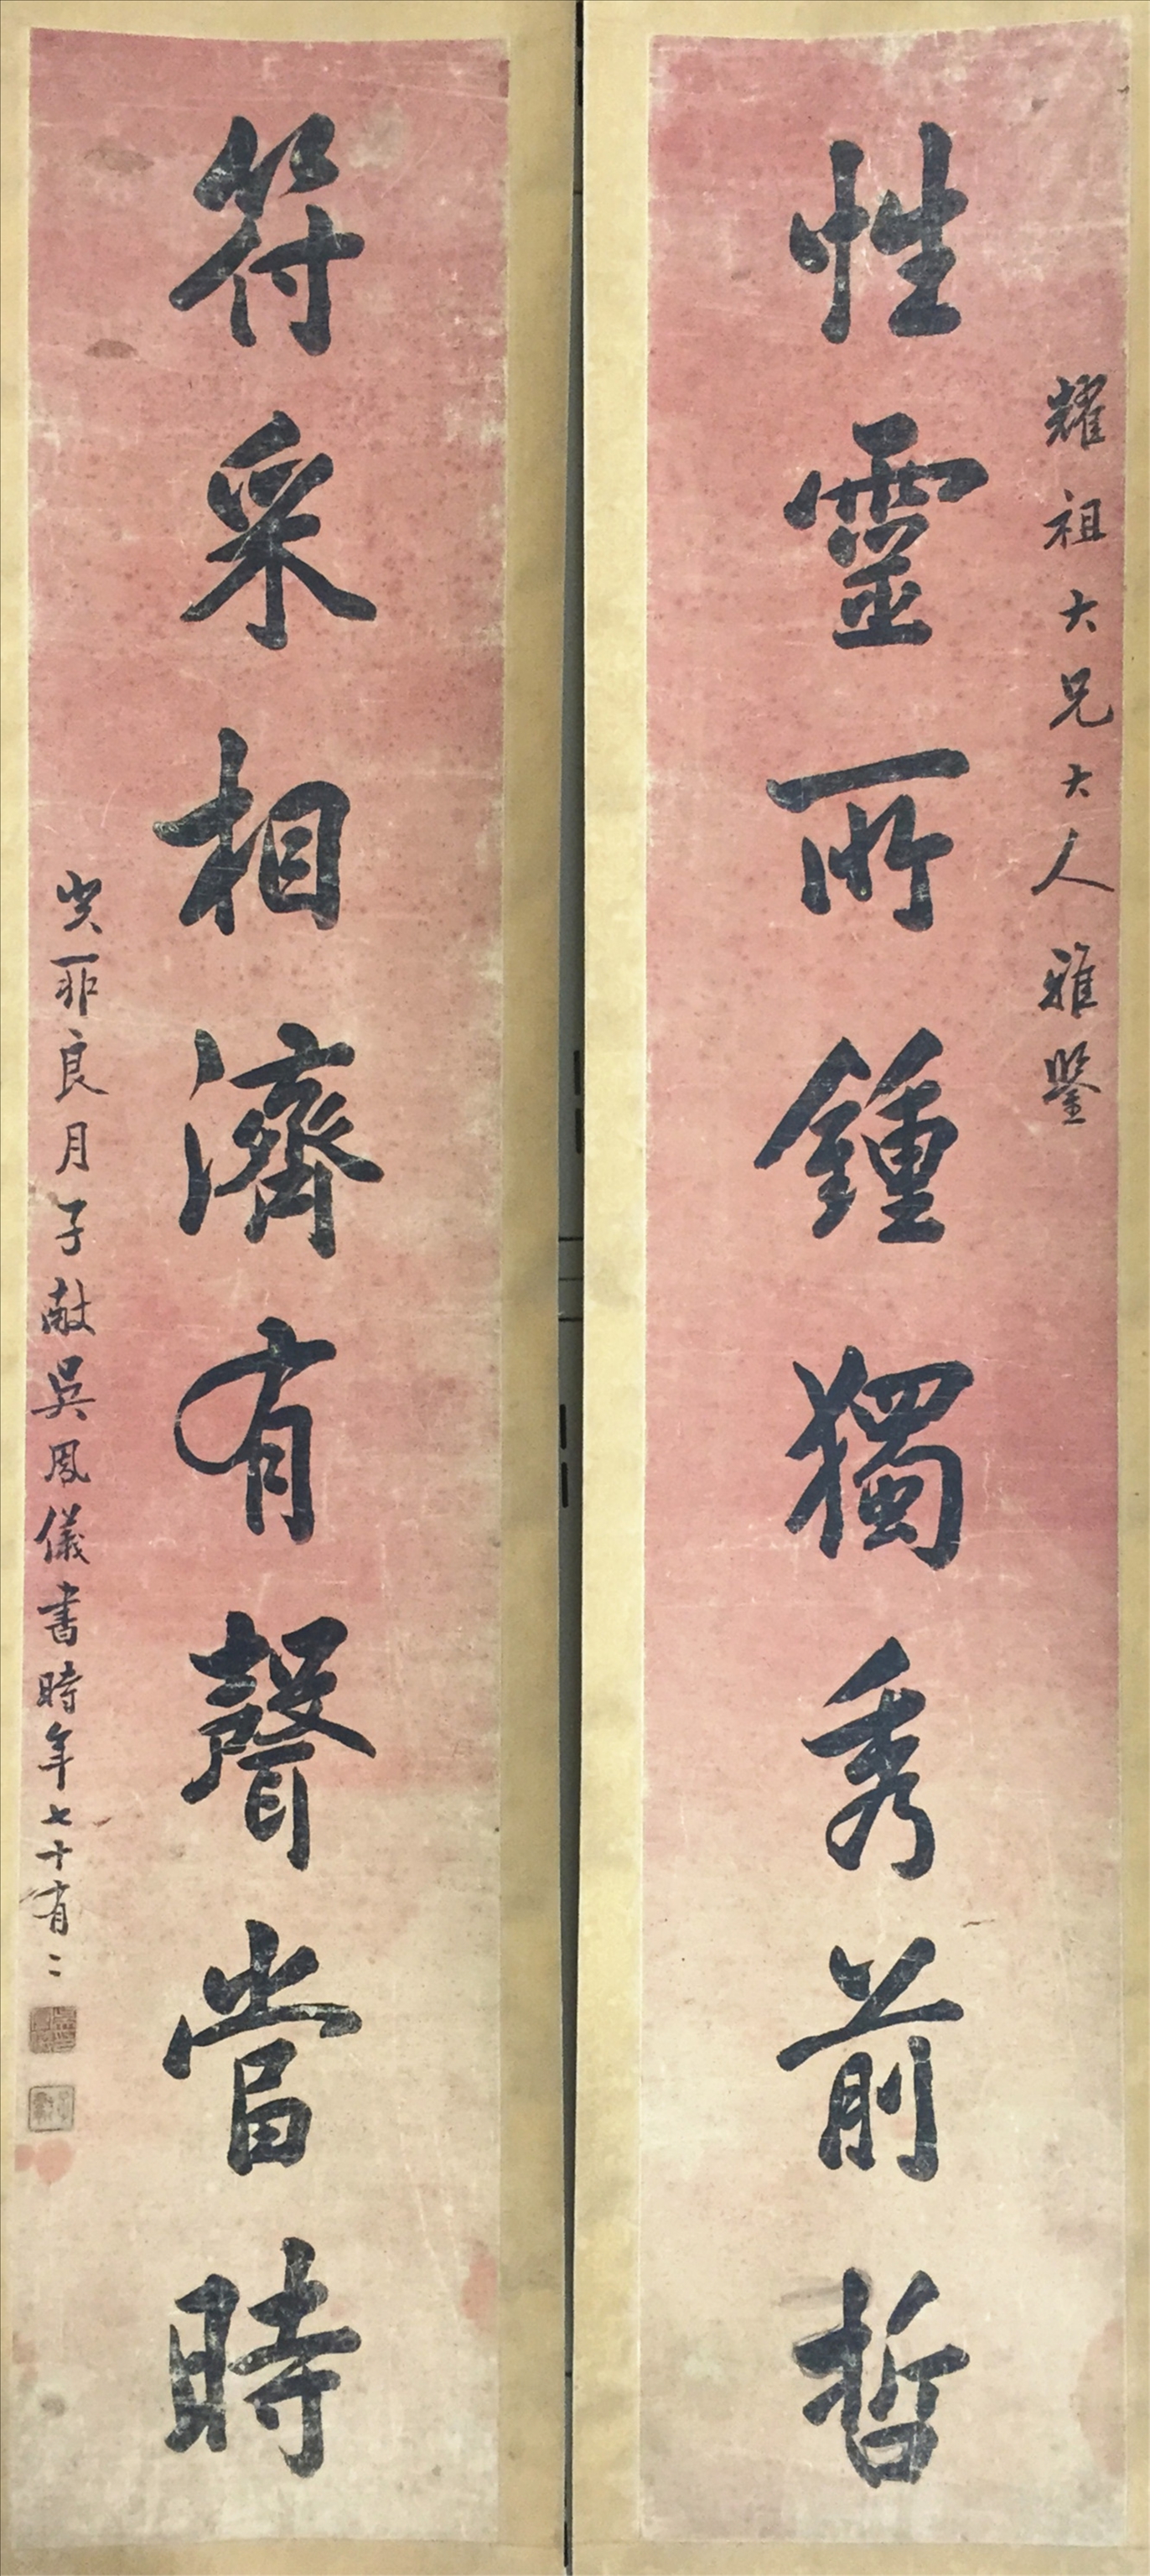 耀祖大兄大人雅鑒
性靈所鍾獨秀前哲
符采相濟有聲當時
良月子敵吳鳳儀書時年七十有二